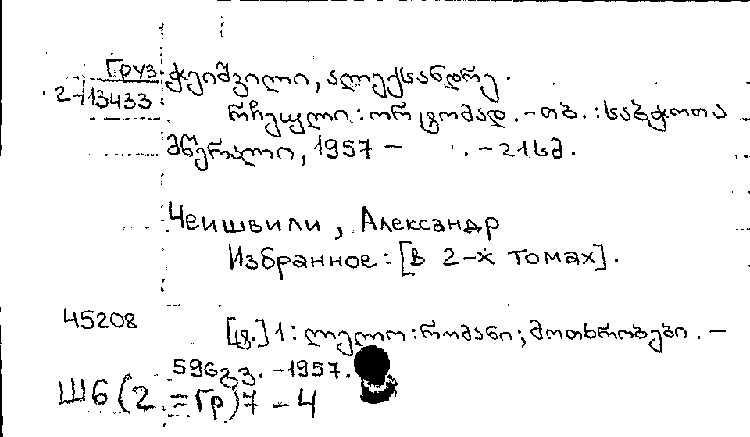 Груз. ჭეიშვილი, ალექსანდრე.
2-13433
რჩეული : ორ ტომად. – თბ. : საბჭოთა
მწერალი, 1957 – . – 21სმ.
Чеишвили, Александр
Избранное : [в 2-х томах].
45208
[ტ.] 1 : ლელო : რომანი ; მოთხრობები. –
596გვ. – 1957.
Ш6(2=Гр)7 – 4